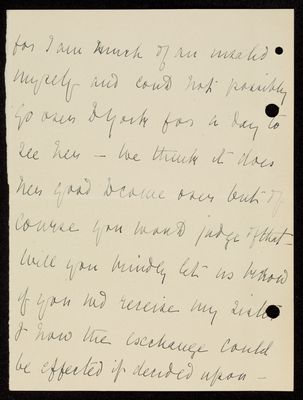 for I am much of an invalid
myself and could not possibly
go over to York for a day to
see her – We think it does
her good to come over but of
course you would judge of that –
Will you kindly let us know
if you wd receive my sister
& how the exchange could
be effected if decided upon –